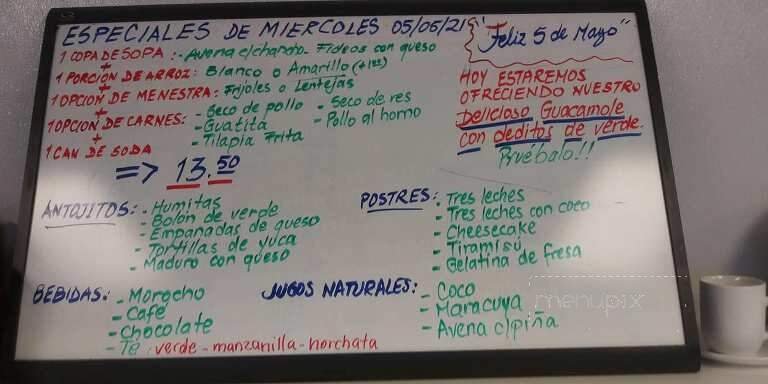 ESPECIALES DE MIERCOLES 05/05/21
"Feliz 5 de Mayo"
1 COPA DE SOPA: - Avena c/chancho - Fideos con queso
+
1 PORCIÓN DE ARROZ: Blanco o Amarillo
+
1 OPCIÓN DE MENESTRA: Frijoles o Lentejas
+
1 OPCIÓN DE CARNES: - Seco de pollo - Seco de res
- Guatita - Pollo al horno
- Tilapia Frita
+
1 CAN DE SODA
=> 13.50
HOY ESTAREMOS
OFRECIENDO NUESTRO
Delicioso Guacamole
con deditos de verde.
Pruébalo!!
ANTOJITOS: - Humitas
- Bolon de verde
- Empanadas de queso
- Tortillas de yuca
- Maduro con queso
POSTRES: - Tres leches
- Tres leches con coco
- Cheesecake
- Tiramisú
- Gelatina de fresa
BEBIDAS: - Morocho
- Café
- Chocolate
- Té verde - manzanilla - horchata
JUGOS NATURALES: - Coco
- Maracuya
- Avena c/piña
menupix